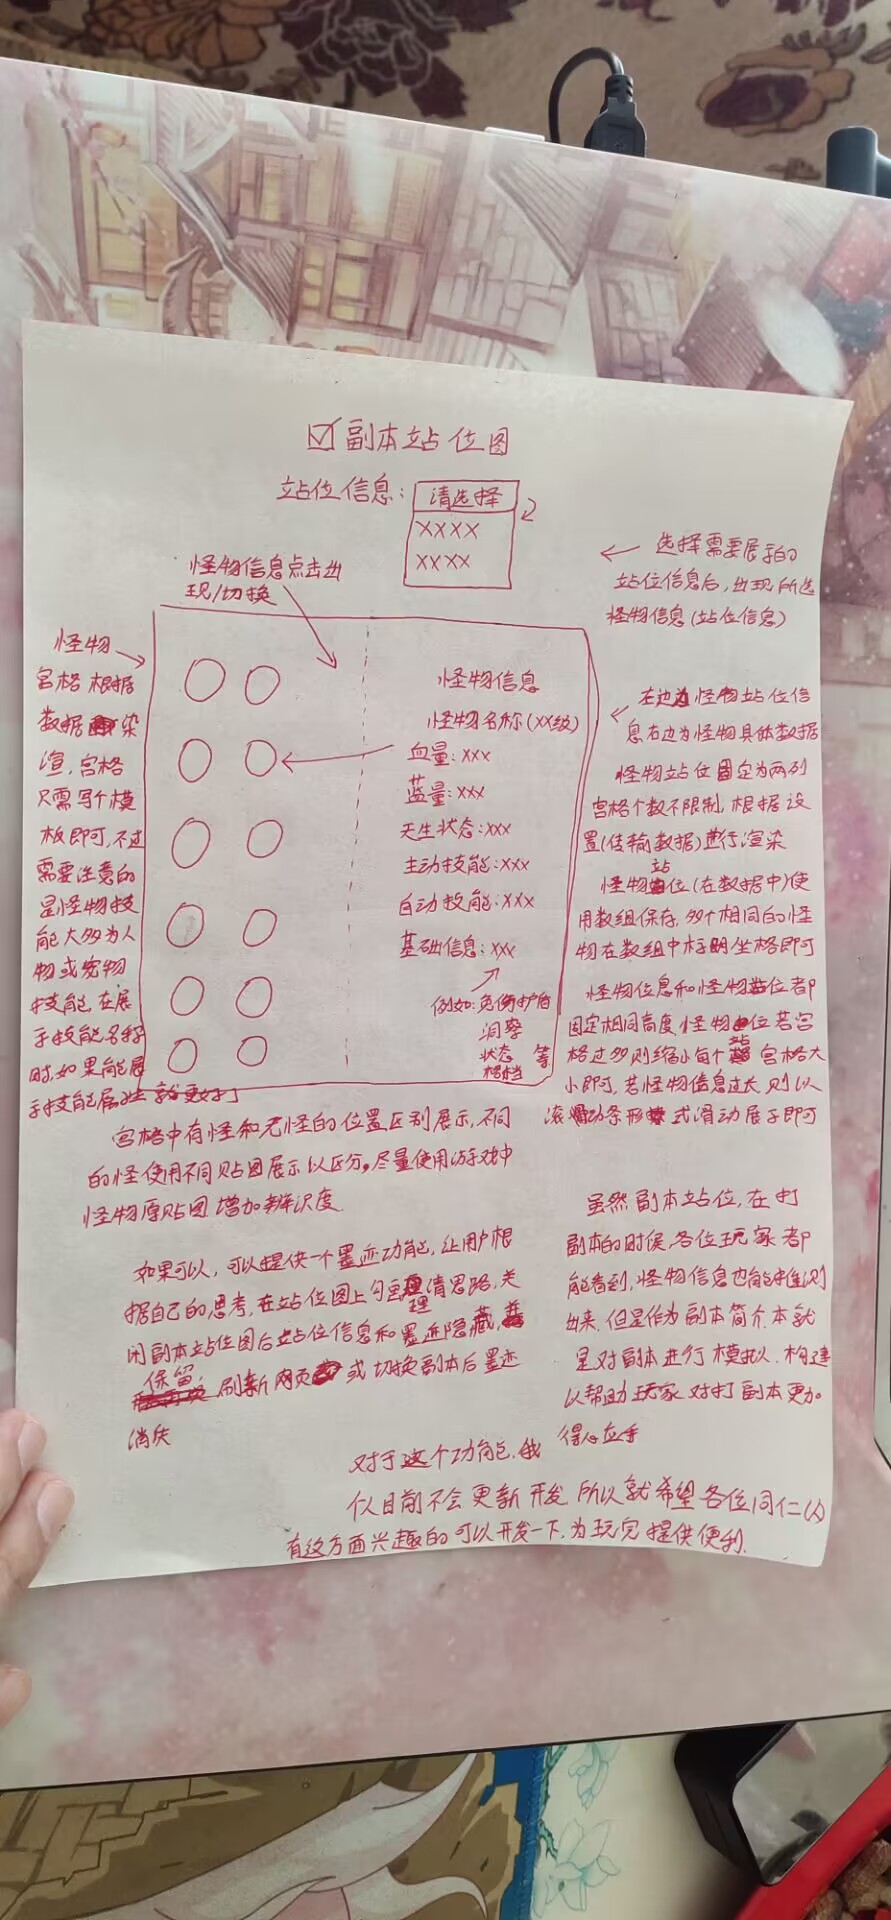 ☑副本站位图
站位信息：请选择
XXXX
XXXX
怪物信息点击出
现/切换
← 选择需要展示的
站位信息后，出现所选
怪物信息(站位信息)
怪物
宫格根据
数据 染
渲，宫格
只需写个模
板即可，不过
需要注意的
是怪物技
能大多为人
物或宠物
技能，在展
示技能名称
时，如果能展
示技能属性就更好了
怪物信息
怪物名称(XX级)
血量：XXX
蓝量：XXX
天生状态：XXX
主动技能：XXX
自动技能：XXX
基础信息：XXX
例如：
洞察
状态
格档 等
左边为怪物站位信
息右边为怪物具体数据
怪物站位固定为两列
宫格个数不限制，根据设
置(传输数据)进行渲染
怪物站位(在数据中)使
用数组保存，多个相同的怪
物在数组中标明坐格即可
怪物信息和怪物站位都
固定相同高度，怪物站位若宫
格过多则缩小每个 宫格大
小即可，若怪物信息过长，则以
滚动条形式滑动展示即可
宫格中有怪和无怪的位置区别展示，不同
的怪使用不同贴图展示以区分。尽量使用游戏中
怪物原贴图增加辨识度
如果可以，可以提供一个墨迹功能，让用户根
据自己的思考，在站位图上勾画理清思路，关
闭副本站位图后站位信息和墨迹隐藏，
保留， 刷新网页 或切换副本后墨迹
消失
虽然副本站位，在打
副本的时候，各位玩家都
能看到，怪物信息也能推测
出来，但是作为副本简介，本就
是对副本进行模拟、构建
以帮助玩家对打副本更加
得心应手
对于这个功能，我
们目前不会更新开发，所以就希望各位同仁们
有这方面兴趣的可以开发一下，为玩家提供便利.